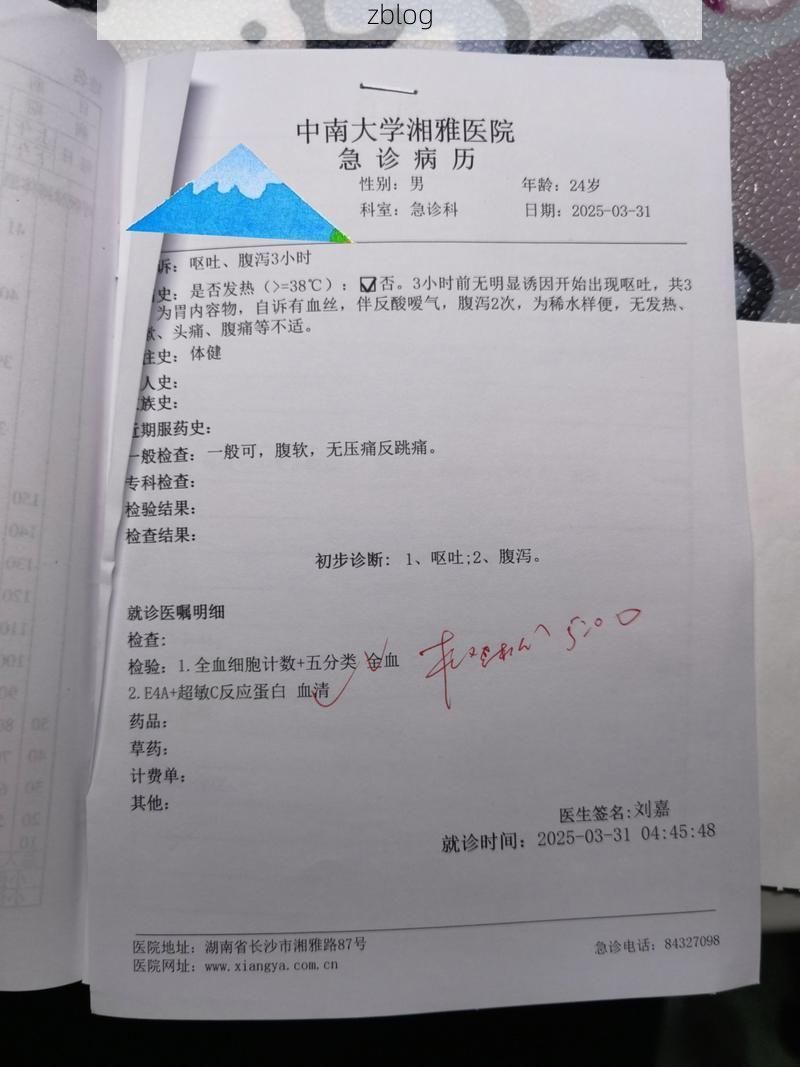 zblog
中南大学湘雅医院
急诊病历
性别：男 年龄：24岁
科室：急诊科 日期：2025-03-31
诉：呕吐、腹泻3小时
史：是否发热（>=38℃）：☑否。3小时前无明显诱因开始出现呕吐，共3
为胃内容物，自诉有血丝，伴反酸嗳气，腹泻2次，为稀水样便，无发热、
、头痛、腹痛等不适。
往史：体健
人史：
族史：
近期服药史：
一般检查：一般可，腹软，无压痛反跳痛。
专科检查：
检验结果：
检查结果：
初步诊断：1、呕吐;2、腹泻。
就诊医嘱明细
检查：
检验：1.全血细胞计数+五分类 全血
2.E4A+超敏C反应蛋白 血清
5:00
药品：
草药：
计费单：
其他：
医生签名:刘嘉
就诊时间：2025-03-31 04:45:48
医院地址：湖南省长沙市湘雅路87号 急诊电话：84327098
医院网址：www.xiangya.com.cn
150
140
130
120
110
100
90